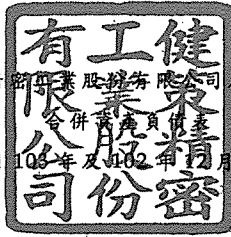 健策精密
工業股份
有限公司
密工業股份有限公司
合併資產負債表
103年及102年12月